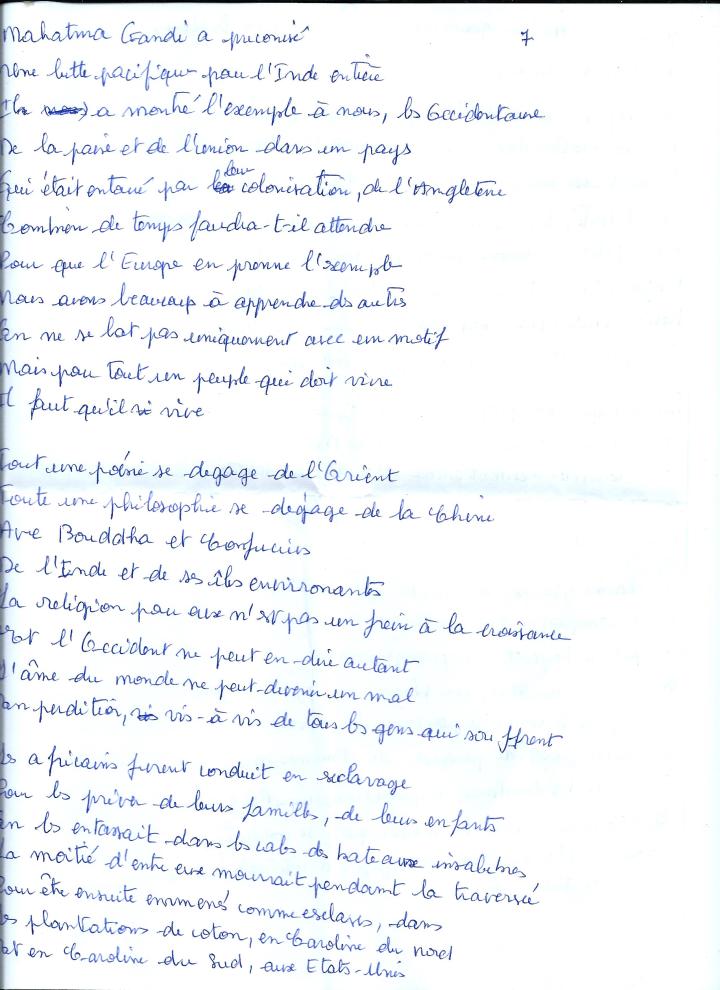 Mahatma Gandi a preconisé 7
Une lutte pacifique pour l'Inde entière
Il a montré l'exemple à nous, les Occidentaux
De la paix et de l'union dans un pays
Qui était entaué par leur colonisation, de l'Angleterre
Combien de temps faudra-t-il attendre
Pour que l'Europe en prenne l'exemple
Nous avons beaucoup à apprendre des autres
On ne se bat pas uniquement avec un motif
Mais pour tout un peuple qui doit vivre
Il faut qu'il vive
Tout une poésie se degage de l'Orient
Toute une philosophie se degage de la Chine
Avec Bouddha et Confucius
De l'Inde et de ses îles environantes
La religion pour eux n'est pas un frein à la croissance
Et l'Occident ne peut en dire autant
L'âme du monde ne peut devenir un mal
En perdition, vis-à vis de tous les gens qui souffrent
Les africains furent conduit en esclavage
Pour les priver de leurs familles, de leurs enfants
On les entassait dans les cales des bateaux insalubres
La moitié d'entre eux mourrait pendant la traversée
Pour être ensuite emmené comme esclaves, dans
Les plantations de coton, en Caroline du nord
Et en Caroline du Sud, aux Etats-Unis